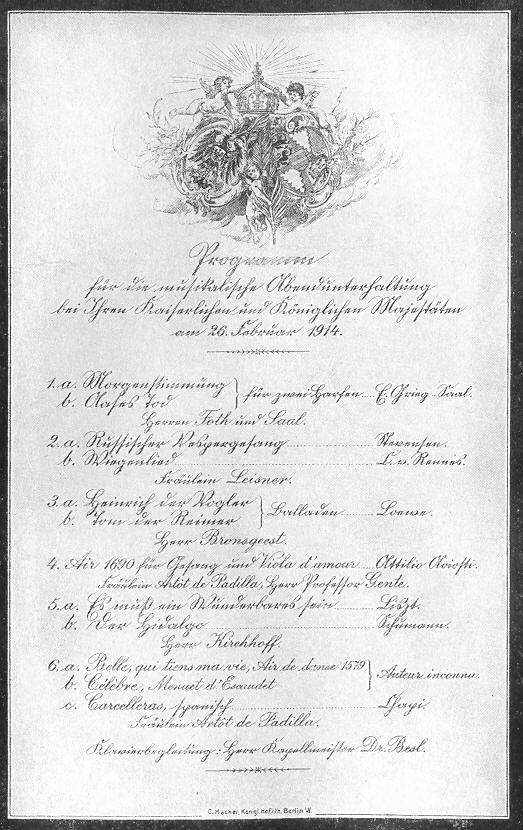 Programm
für die musikalische Abendunterhaltung
bei Ihren Kaiserlichen und Königlichen Majestäten
am 26. Februar 1914.
1. a. Morgenstimmung
b. Aases Tod } für zwei Harfen E. Grieg-Saal.
Herren Foth und Saal.
2. a. Russischer Vespergesang Stevensen.
b. Wiegenlied C. v. Rennes.
Fräulein Leisner.
3. a. Heinrich der Vogler
b. Tom der Reimer } Balladen Loewe.
Herr Bronsgeest.
4. Air 1690 für Gesang und Viola d'amour Attilio Ariosti.
Fräulein Artôt de Padilla, Herr Professor Gente.
5. a. Es muß ein Wunderbares sein Liszt.
b. Der Hidalgo Schumann.
Herr Kirchhoff.
6. a. Belle, qui tiens ma vie, Air de danse 1579
b. Célèbre, Menuet d'Exaudet } Auteur inconnu.
c. Carcelleras, spanisch Chapi.
Fräulein Artôt de Padilla.
Klavierbegleitung: Herr Kapellmeister Dr. Besl.
C. Hacker, Königl. Hoflith. Berlin W.